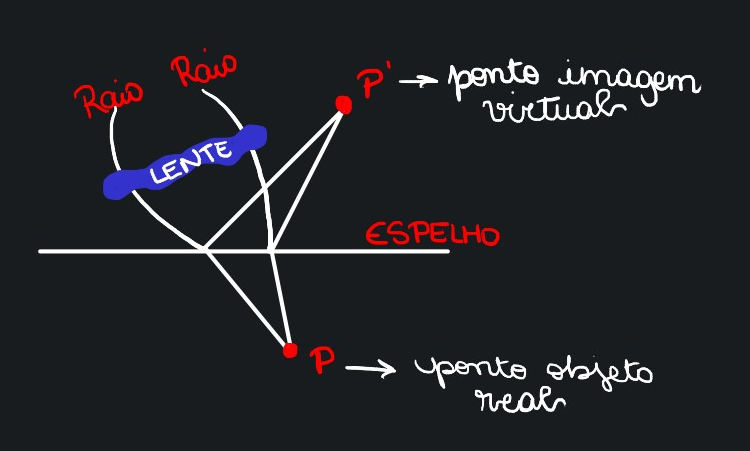 Raio
Raio
P' → ponto imagem
virtual
LENTE
ESPELHO
P → ponto objeto
real